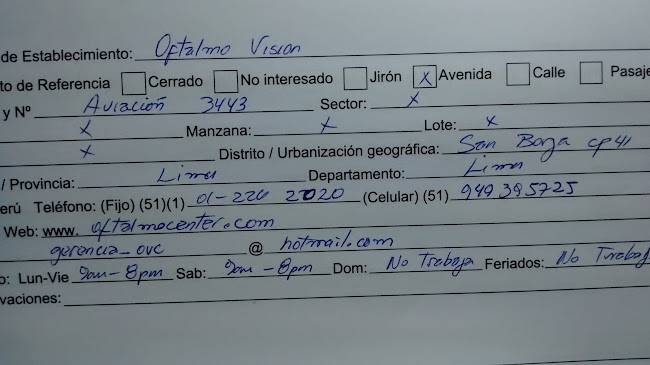 de Establecimiento: Oftalmo Vision
to de Referencia Cerrado No interesado Jirón X Avenida Calle Pasaje
y Nº Aviación 3443 Sector: X
X Manzana: X Lote: X
X Distrito / Urbanización geográfica: San Borja cp41
/ Provincia: Lima Departamento: Lima
erú Teléfono: (Fijo) (51)(1) 01-226 2020 (Celular) (51) 949395725
Web: www. oftalmocenter.com
gerencia_ovc @ hotmail.com
o: Lun-Vie 9am-8pm Sab: 9am-8pm Dom: No Trabaja Feriados: No Trabaj
vaciones: